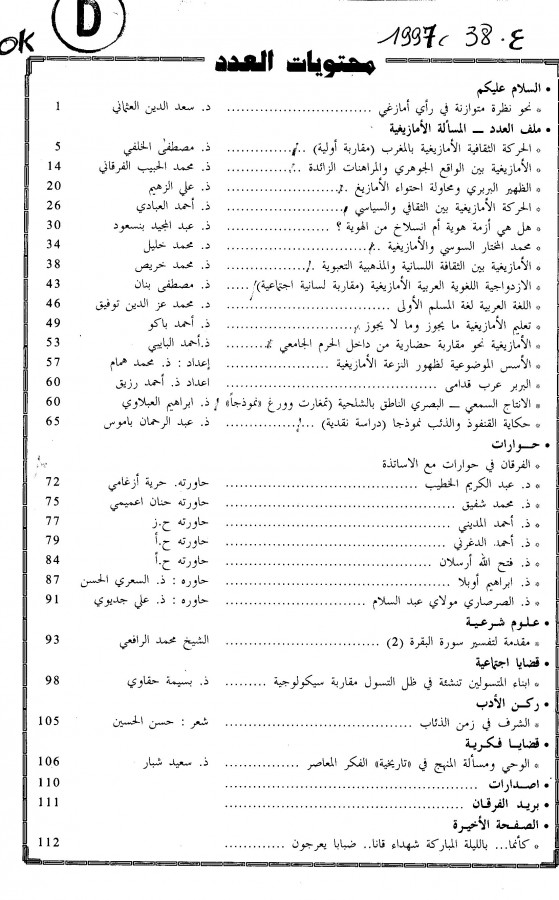 OK
D
ع. 38 ، 1997
محتويات العدد
• السلام عليكم
* نحو نظرة متوازنة في رأي أمازغي .................... د. سعد الدين العثماني 1
• ملف العدد ــ المسألة الأمازيغية
* الحركة الثقافية الأمازيغية بالمغرب (مقاربة أولية) .......... ذ. مصطفى الخلفي 5
* الأمازيغية بين الواقع الجوهري والمراهنات الزائدة .......... ذ. محمد الحبيب الفرقاني 14
* الظهير البربري ومحاولة احتواء الأمازيغ .......... ذ. علي الزهيم 20
* الحركة الأمازيغية بين الثقافي والسياسي .......... ذ. أحمد العبادي 26
* هل هي أزمة هوية أم انسلاخ من الهوية ؟ .......... ذ. عبد المجيد بنسعود 30
* محمد المختار السوسي والأمازيغية .......... ذ. محمد خليل 34
* الأمازيغية بين الثقافة اللسانية والمذهبية التعبوية .......... ذ. محمد خريص 38
* الازدواجية اللغوية العربية الأمازيغية (مقاربة لسانية اجتماعية) .......... ذ. مصطفى بنان 43
* اللغة العربية لغة المسلم الأولى .......... ذ. محمد عز الدين توفيق 46
* تعليم الأمازيغية ما يجوز وما لا يجوز .......... ذ. أحمد باكو 49
* الأمازيغية نحو مقاربة حضارية من داخل الحرم الجامعي .......... ذ.أحمد البايبي 53
* الأسس الموضوعية لظهور النزعة الأمازيغية .......... إعداد : ذ. محمد همام 57
* البربر عرب قدامى .......... اعداد ذ. أحمد رزيق 60
* الانتاج السمعي ــ البصري الناطق بالشلحية (تمغارت وورغ «نموذجاً» ذ. ابراهيم العبلاوي 60
* حكاية القنفوذ والذئب نموذجا (دراسة نقدية) .......... ذ. عبد الرحمان باموس 65
• حــوارات
* الفرقان في حوارات مع الاساتذة
* د. عبد الكريم الخطيب .......... حاورته. حرية أزغامي 72
* ذ. محمد شفيق .......... حاورته حنان اعميمي 75
* ذ. أحمد المديني .......... حاورته ح.ز 77
* ذ. أحمد الدغرني .......... حاورته ح.أ 79
* ذ. فتح الله أرسلان .......... حاورته ح.أ 84
* ذ. ابراهيم أوبلا .......... حاوره : ذ. السعري الحسن 87
* ذ. الصرصاري مولاي عبد السلام .......... حاوره : ذ. علي جديوي 91
• علـوم شرعيـة
* مقدمة لتفسير سورة البقرة (2) .......... الشيخ محمد الرافعي 93
• قضايا اجتماعية
* ابناء المتسولين تنشئة في ظل التسول مقاربة سيكولوجية .......... ذ. بسيمة حقاوي 98
• ركــن الأدب
* الشرف في زمن الذئاب .......... شعر : حسن الحسين 105
• قضايـا فكـرية
* الوحي ومسألة المنهج في «تاريخية» الفكر المعاصر .......... ذ. سعيد شبار 106
• اصـدارات .......... 110
• بريـد الفرقـان .......... 111
• الصفحـة الأخيرة
* كأنما... بالليلة المباركة شهداء قانا.. ضبابا يعرجون .......... 112